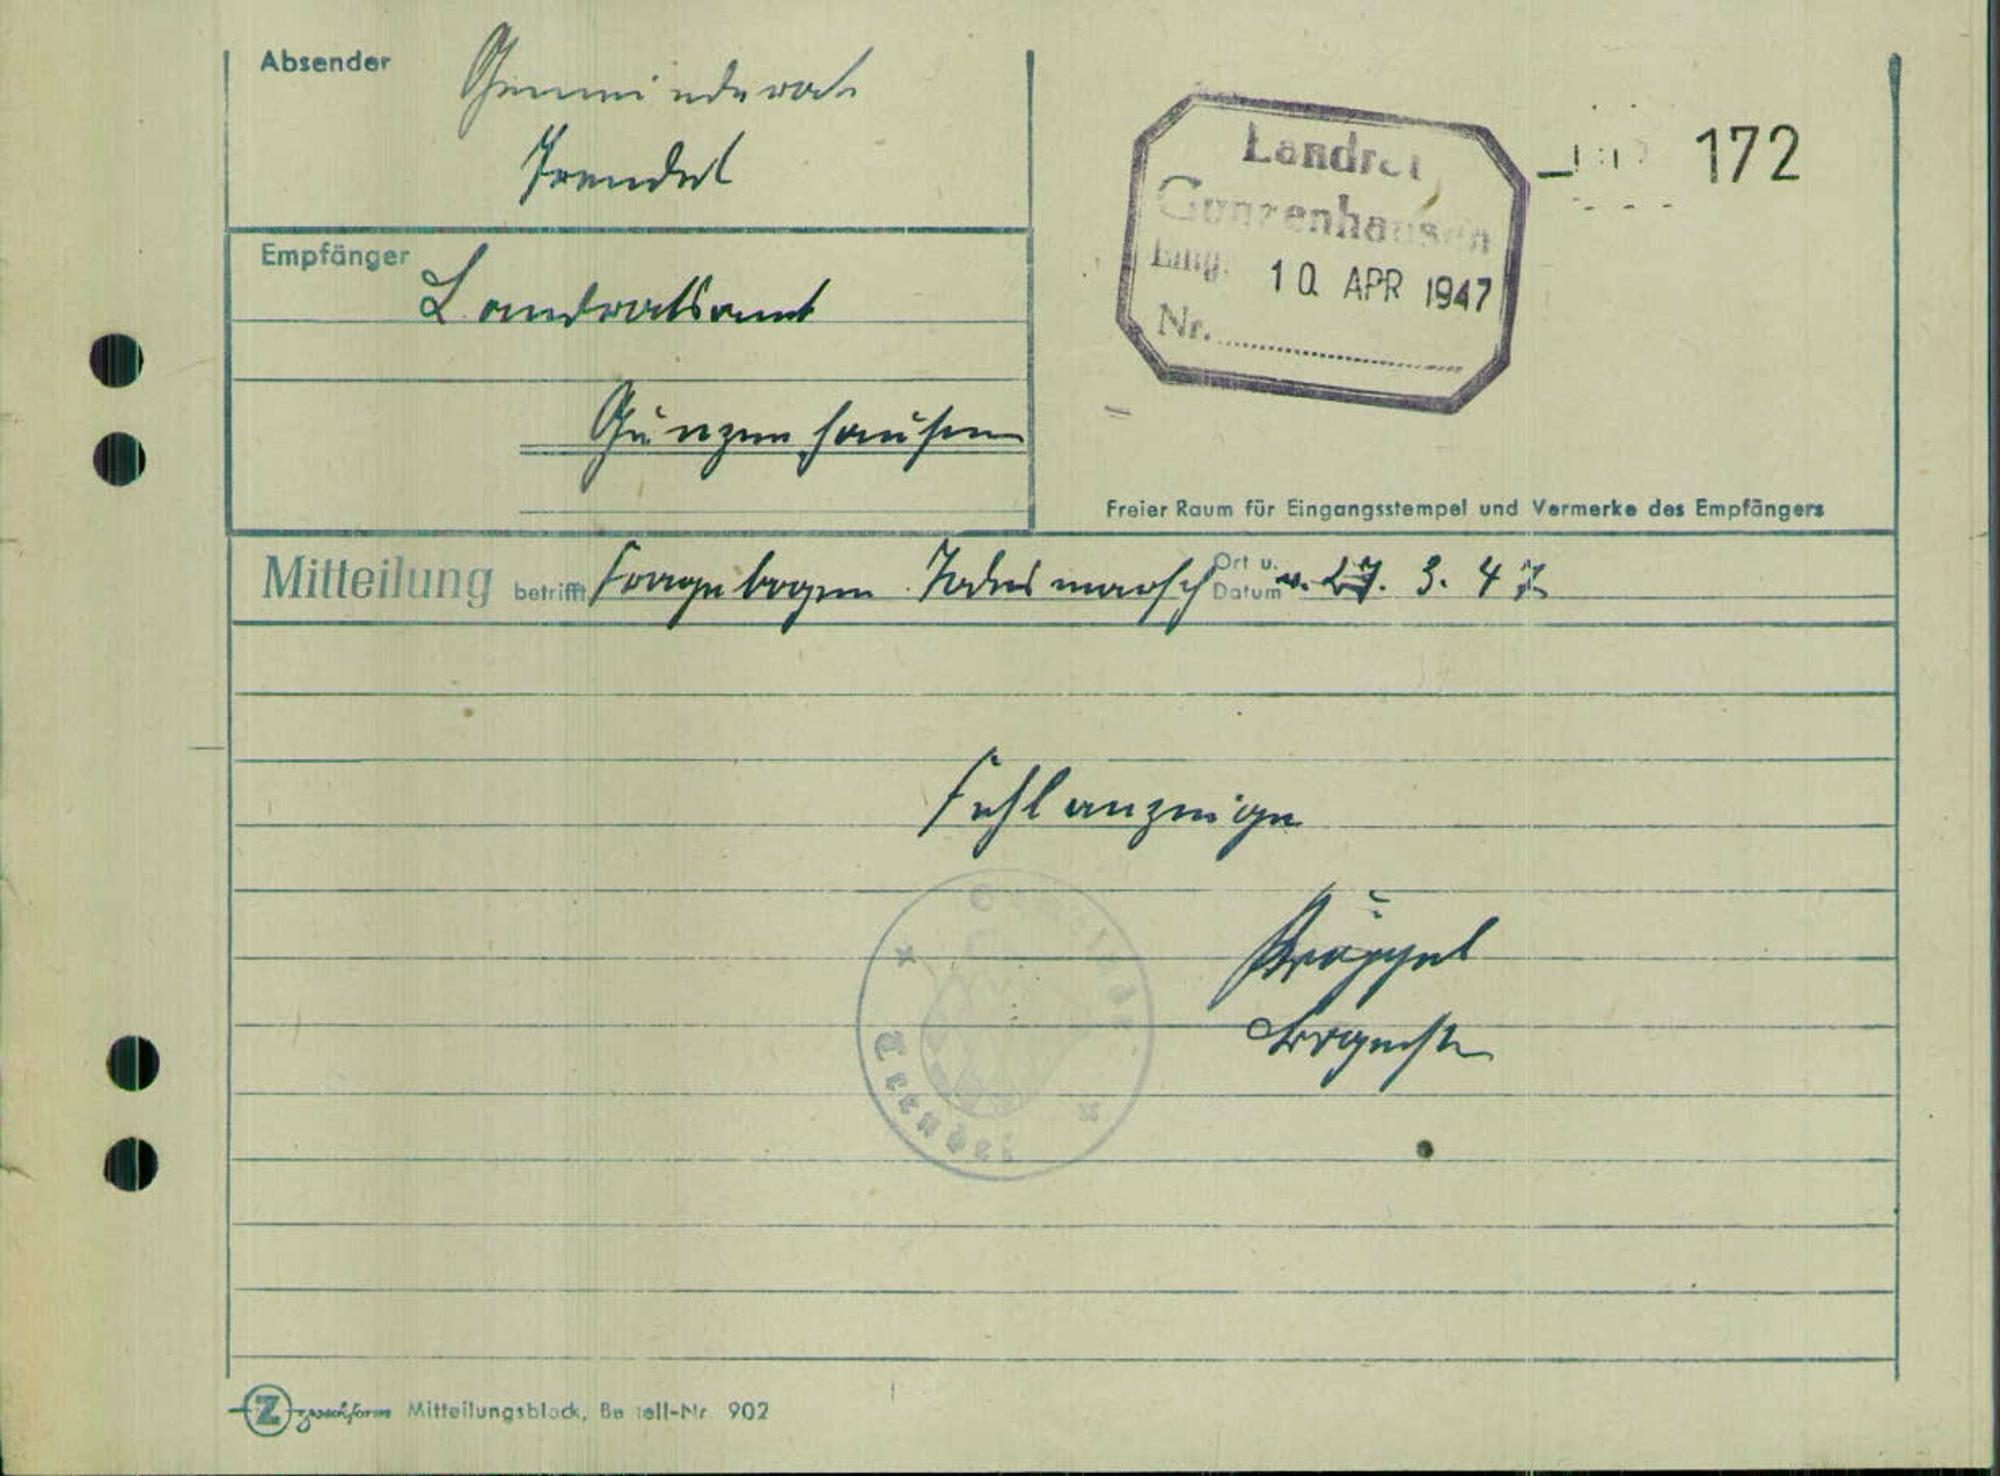 Absender
Gemeinderat
Trendel
Empfänger
Landratsamt
Gunzenhausen
Landrat
Gunzenhausen
Eing. 10 APR 1947
Nr.
172
Freier Raum für Eingangsstempel und Vermerke des Empfängers
Mitteilung betrifft Fragebogen Todesmarsch Ort u. Datum v. 27. 3. 47
Fehlanzeige
Gemeinde
Trendel
Z Zweckform Mitteilungsblock, Bestell-Nr. 902